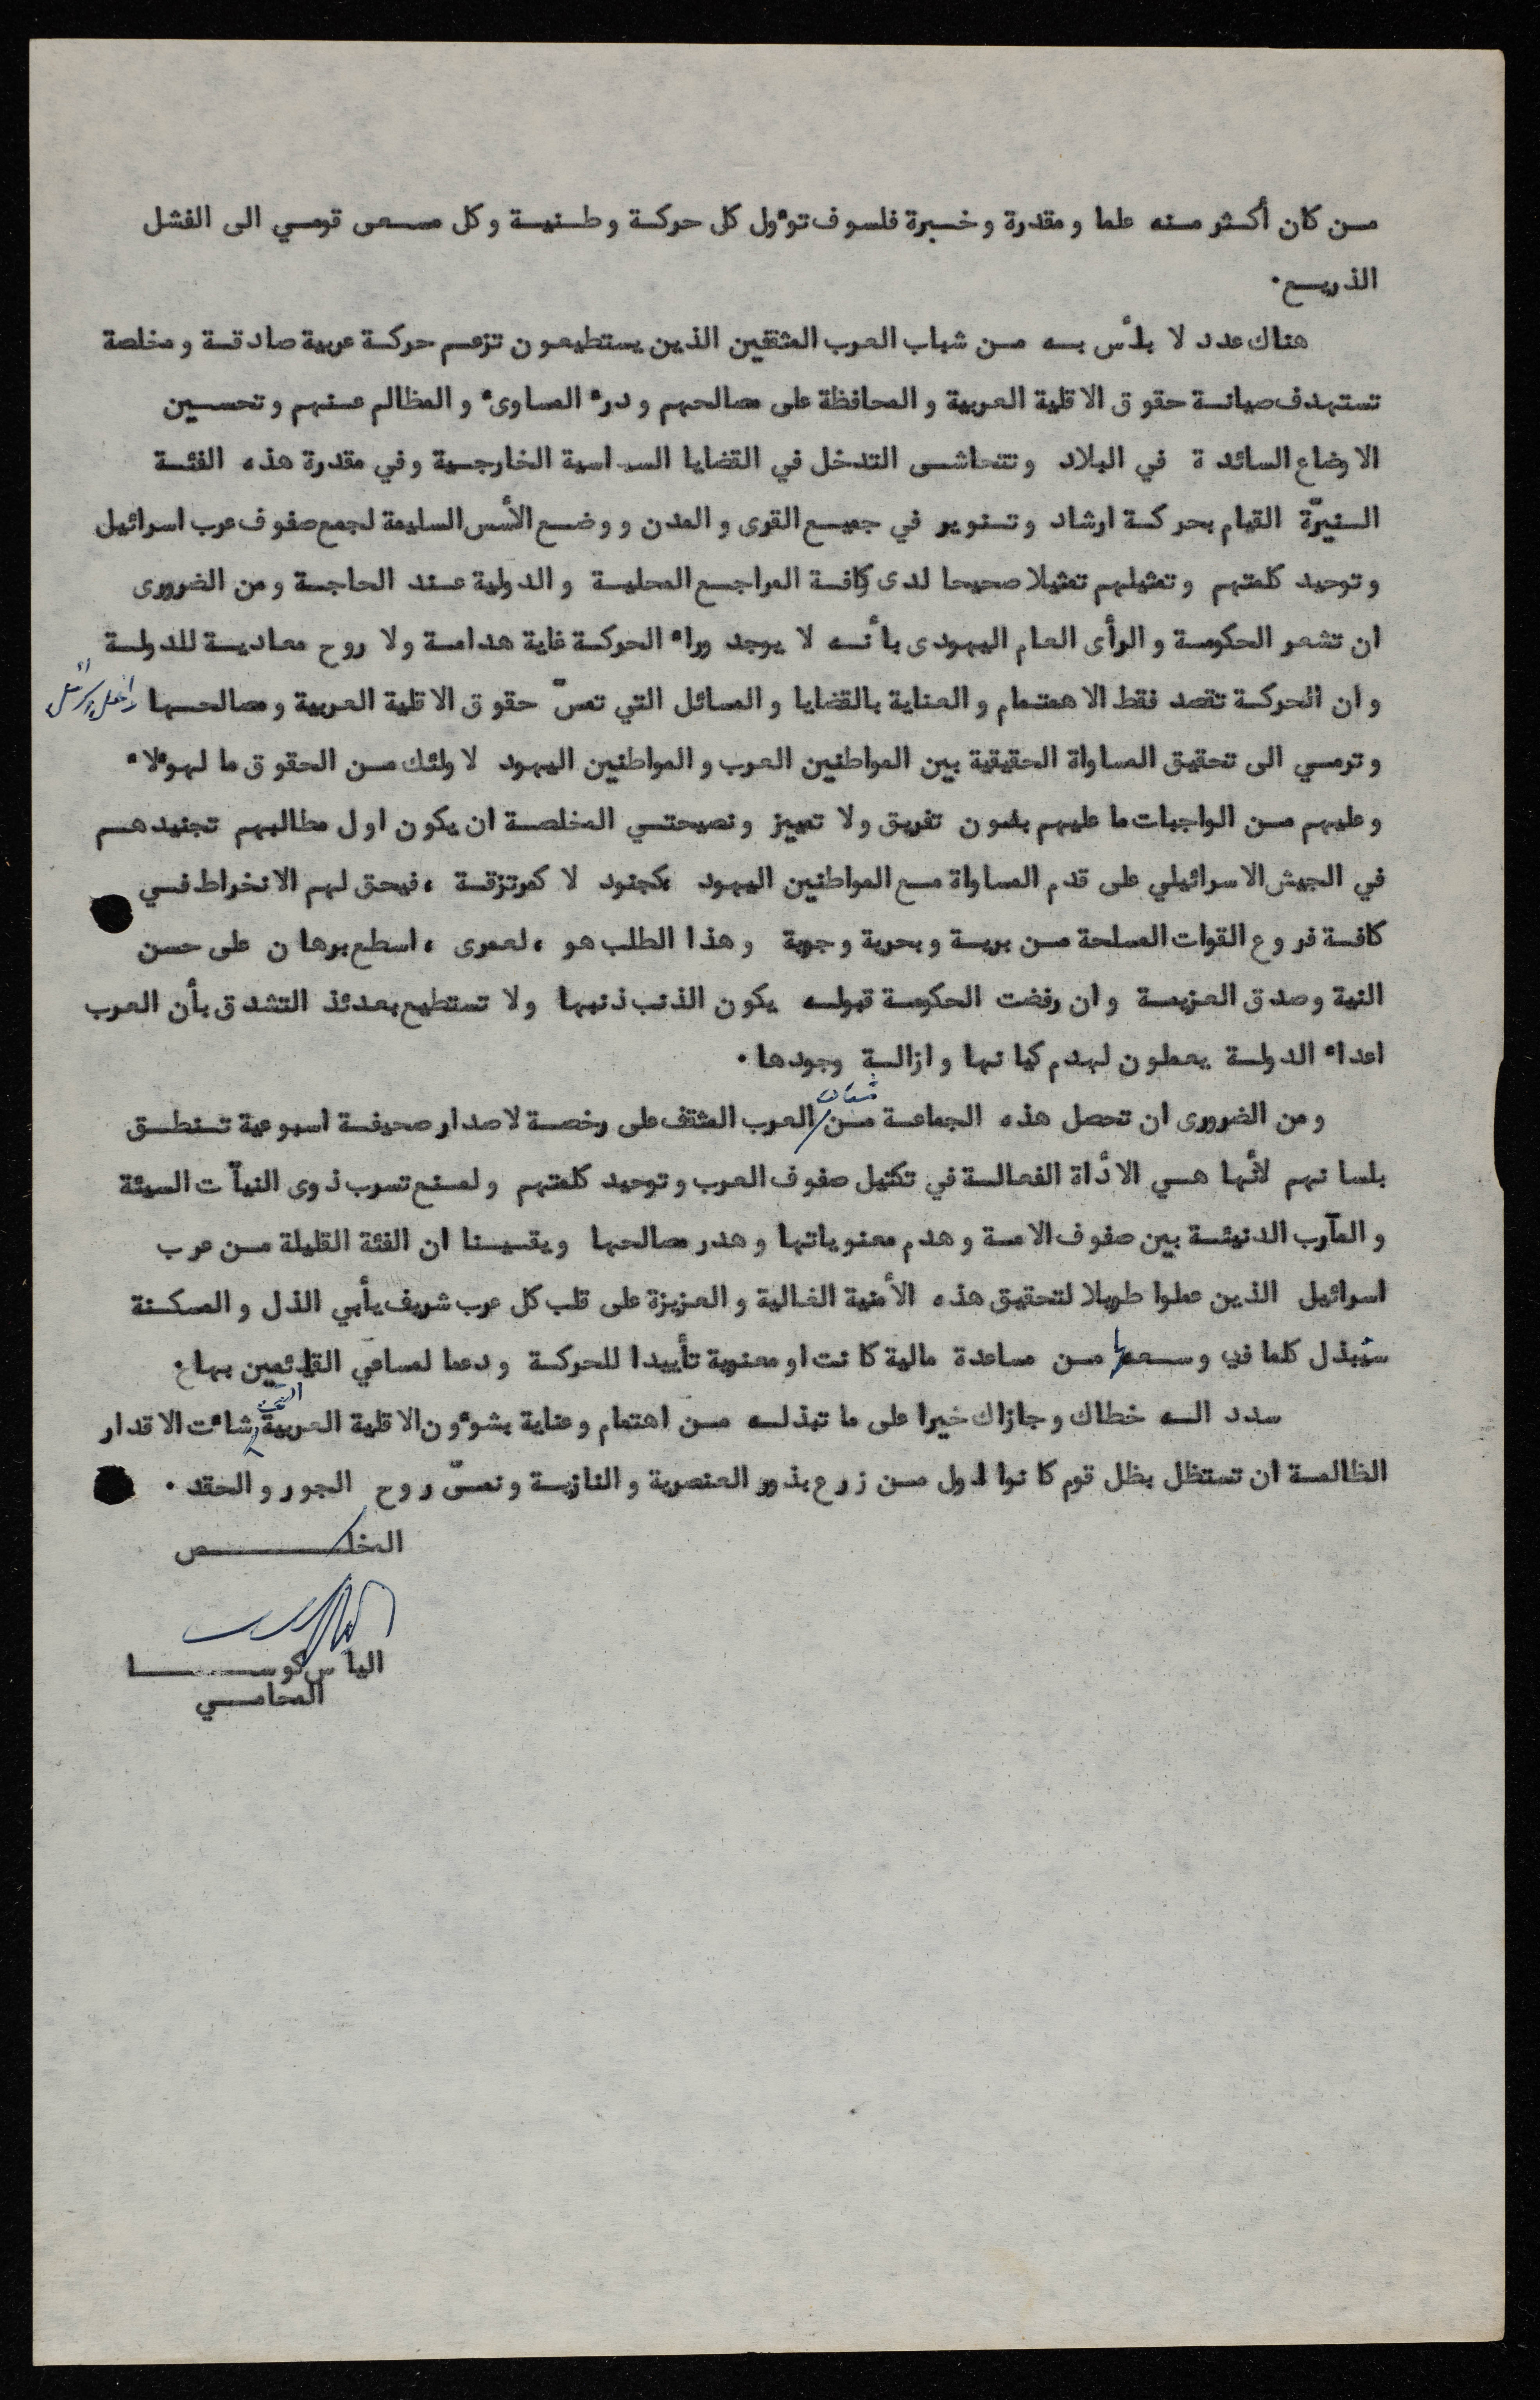 من كان أكثر منه علما ومقدرة وخبرة فلسوف تؤول كل حركة وطنية وكل مسعى قومي الى الفشل
الذريع.
هناك عدد لا بأس به من شباب العرب المثقفين الذين يستطيعون تزعم حركة عربية صادقة ومخلصة
تستهدف صيانة حقوق الاقلية العربية والمحافظة على مصالحهم ودرء المساوىء والمظالم عنهم وتحسين
الاوضاع السائدة في البلاد وتتحاشى التدخل في القضايا السياسية الخارجية وفي مقدرة هذه الفئة
النيرّة القيام بحركة ارشاد وتنوير في جميع القرى والمدن ووضع الأسس السليمة لجمع صفوف عرب اسرائيل
وتوحيد كلمتهم وتمثيلهم تمثيلا صحيحا لدى كافة المراجع المحلية والدولية عند الحاجة ومن الضرورى
ان تشعر الحكومة والرأى العام اليهودى بأنه لا يوجد وراء الحركة غاية هدامة ولا روح معادية للدولة
وان الحركة تقصد فقط الاهتمام والعناية بالقضايا والمسائل التي تمسّ حقوق الاقلية العربية ومصالحها داخل اسرائيل
وترمي الى تحقيق المساواة الحقيقية بين المواطنين العرب والمواطنين اليهود لاولئك من الحقوق ما لهؤلاء
وعليهم من الواجبات ما عليهم بدون تفريق ولا تمييز ونصيحتي المخلصة ان يكون اول مطالبهم تجنيدهم
في الجيش الاسرائيلي على قدم المساواة مع المواطنين اليهود كجنود لا كمرتزقة ، فيحق لهم الانخراط في
كافة فروع القوات المسلحة من برية وبحرية وجوية وهذا الطلب هو ، لعمرى ، اسطع برهان على حسن
النية وصدق العزيمة وان رفضت الحكومة قبوله يكون الذنب ذنبها ولا تستطيع بعدئذ التشدق بأن العرب
اعداء الدولة يعملون لهدم كيانها وازالة وجودها.
ومن الضرورى ان تحصل هذه الجماعة من شبان العرب المثقف على رخصة لاصدار صحيفة اسبوعية تنطق
بلسانهم لأنها هي الأداة الفعالة في تكتيل صفوف العرب وتوحيد كلمتهم ولمنع تسرب ذوى النيآت السيئة
والمآرب الدنيئة بين صفوف الامة وهدم معنوياتها وهدر مصالحها ويقيننا ان الفئة القليلة من عرب
اسرائيل الذين عملوا طويلا لتحقيق هذه الأمنية الغالية والعزيزة على قلب كل عرب شريف يأبي الذل والمسكنة
ستبذل كلما في وسعها من مساعدة مالية كانت او معنوية تأييدا للحركة ودعما لمساعي القائمين بها.
سدد الله خطاك وجازاك خيرا على ما تبذله من اهتمام وعناية بشؤون الاقلية العربية التي شاءت الاقدار
الظالمة ان تستظل بظل قوم كانوا اول من زرع بذور العنصرية والنازية ونمىّ روح الجور والحقد.
المخلص
الياس كوسا
المحامي